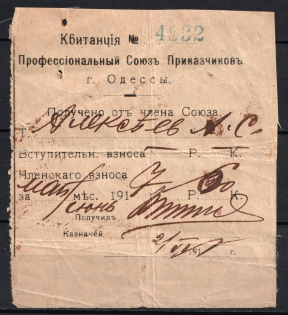 Квитанція № 4932
Профессіональный Союзъ Приказчиковъ
г. Одессы.
Получено отъ члена Союза
Г. Алексѣевъ А. С.
Вступительн. взноса Р. К.
Членскаго взноса Р. К.
за май/іюнь мѣс. 191
Получилъ
Казначей
191 г.